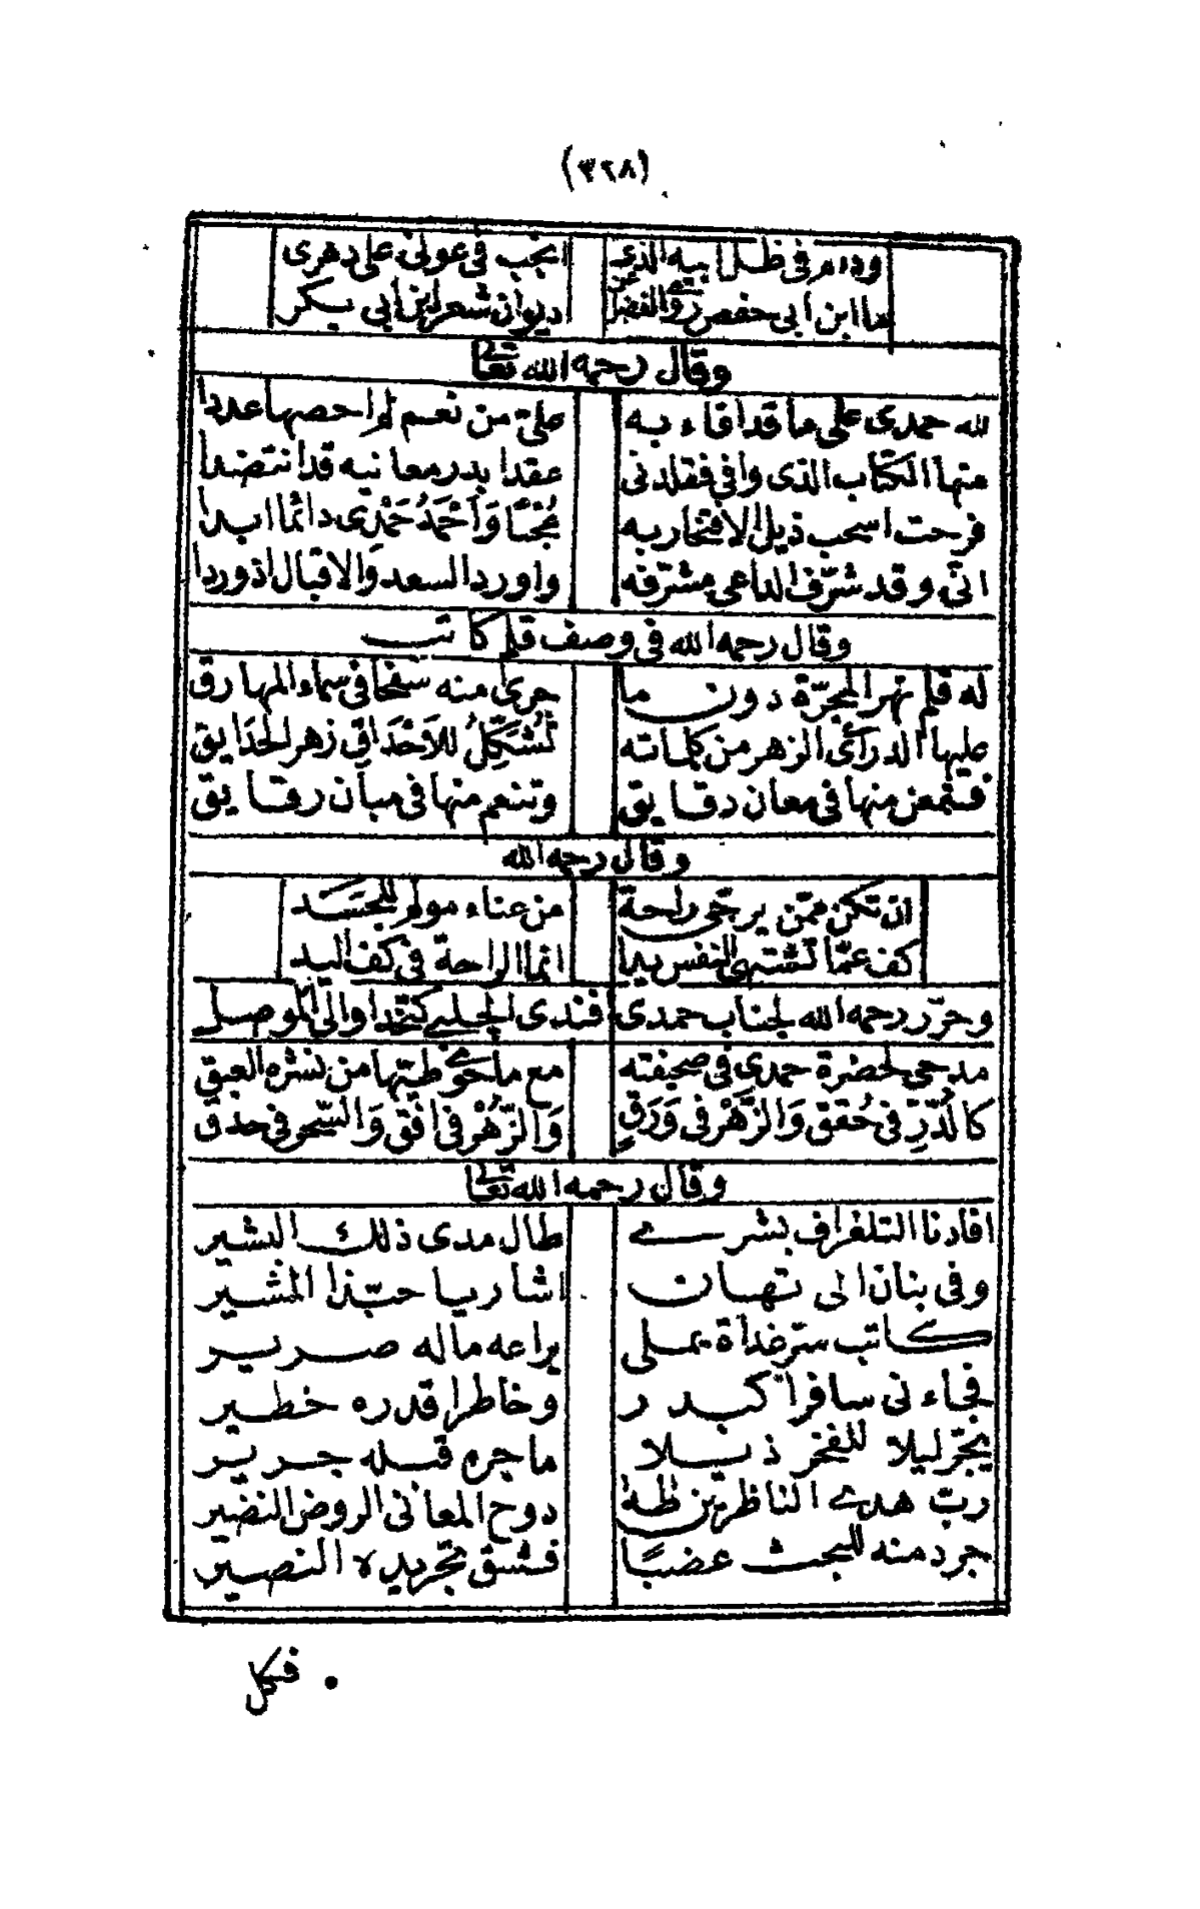 (٣٢٨)
ودام في ظل ابيه الذي انجب في عوني على دهري
ما ابن ابي حفص روى الفضل عن ديوان شعر ابن ابي بكر
وقال رحمه الله تعالى
لله حمدى على ما قد افاء به علىّ من نعم لم احصها عددا
منها الكتاب الذى وافى فقلدنى عقدا بدر معانيه قد انتضدا
فرحت اسحب ذيل الافتخار به عُجْبًا وَاَحْمَدُ حَمْدِى دائما ابدا
انى وقد شرّف الداعى مشرّفه واورد السعد وَالاقبال اذ وردا
وقال رحمه الله فى وصف قلم كاتب
له قلم نهر المجرّة دون ما جرى منه سفحا فى سماء المهارق
عليها الدرارى الزهر من كلماته تُشَكِّلُ للاَحْدَاقِ زهر الحَدَايق
فنمعن منها فى معان دقايق وتنعم منها فى مبان رقايق
وقال رحمه الله
ان تكن ممّن يرجّى راحة من عناء مولم للجسد
كف عمّا تشتهى النفس يدا انما الراحة فى كف اليد
وحرّر رحمه الله لجناب حمدى افندى الجلبى كتخدا والى الموصل
مدحى لحضرة حمدى فى صحيفته مع ما حوى طيّها من نشره العبق
كالدُّرِّ فى حُقَقٍ وَالزَّهْرِ فى وَرَقٍ وَالزُّهْرِ فى اُفُقٍ وَالسِّحر فى حدق
وقال رحمه الله تعالى
افادنا التلغراف بشرى طال مدى ذلك البشير
وفى بنان الى تهان اشار يا حبّذا المشير
كاتب سرّ غداة يملى يراعه ما له صرير
فجاءنى سافرا كبدر وخاطرا قدره خطير
يجرّ ليلا للفخر ذيلا ما جره قبله جرير
ربّ هدى الناظرين ظلّه دوح المعانى الروض النضير
جرد منه للبحث عضبًا فشق تجريده النصير
فكل